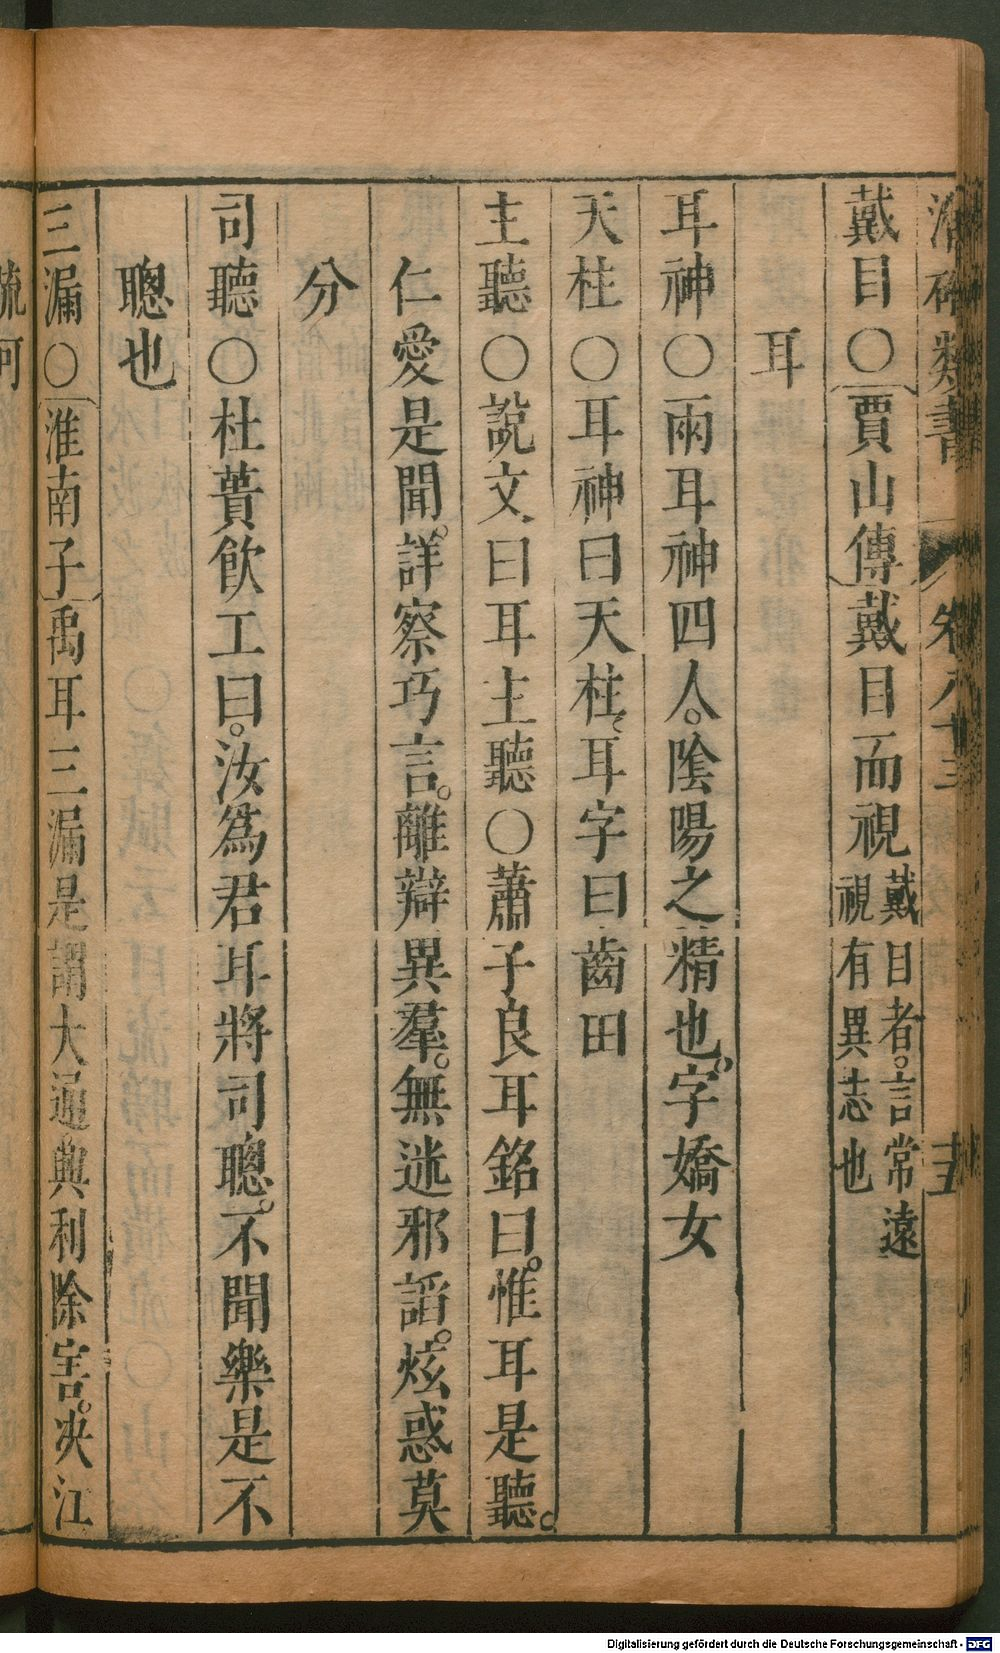 類書 卷八十三 十五
戴目○賈山傳戴目而視戴目者。言常遠視有異志也
耳
耳神○兩耳神四人。陰陽之精也。字嬌女
天柱○耳神曰天柱、耳字曰齒田
主聽○說文、曰耳主聽○蕭子良耳銘曰。惟耳是聽。
仁愛是聞。詳察巧言。離辯異羣。無迷邪謟。炫惑莫
分
司聽○杜蕢飲工曰。汝爲君耳將司聰。不聞樂是不
聰也
三漏○淮南子禹耳三漏是謂大通典利除害。决江
疏河
Digitalisierung gefördert durch die Deutsche Forschungsgemeinschaft - DFG